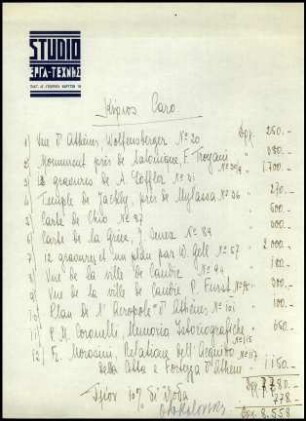 STUDIO
ΕΡΓΑ-ΤΕΧΝΗΣ
Κύριος Caro
1) Vue d'Athènes Wolfensberger No 20 Δρχ. 250.-
2) Monument près de Salonique, E. Troyani
3) 12 gravures de A. Löffler No 31 1.700.-
4) Temple de Jackly, près de Mylassa No 36 270.-
5) Carte de Chio No 87
6) Carte de la Grèce, J. Senex No 89
7) 12 gravures et un plan par W. Gell No 67 2.000
8) Vue de la ville de Candie No 94 180.-
9) Vue de la ville de Candie P. Furst
10) Plan de l'Acropole d'Athènes No 101
11) P. M. Coronelli, Memorie Istoriografiche 650.-
12) Fr. Morosini, Relatione dell'Acquisto
della Città e Fortezza d'Athene 1.150.-
Δρχ. 7780.-
Πλέον 10% δι' έξοδα 778.-
Δρχ. 8.558